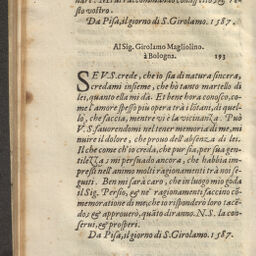 sto vostro.
Da Pisa, il giorno di S. Girolamo. 1587.
Al Sig. Girolamo Magliolino.
à Bologna. 193
SE V.S. crede, che io sia di natura sincera,
credami insieme, che hò tanto martello di
lei, quanto ella mi dà. Et bene hora conosco, co-
me l'amore spesso più opera trà i lõtani, di quel-
lo, che faccia, mentre vi è la vicinanza. Può
V.S. fauorendomi nel tener memoria di me, mi
nuire il dolore, che prouo dell'absenza di lei.
Il che come ch'io creda, che pur sia, per sua gen
tilezza; mi persuado ancora, che habbia im
pressi nell'animo molti ragionamenti trà noi se
guiti. Ben mi sarà caro, che in luogo mio goda
il Sig. Persio, & ne' ragionamenti faccian cõ-
memoratione di me, che io risponderò loro tace-
do; & approuerò, quãto diranno. N.S. la con-
serui, & prosperi.
Da Pisa, il giorno di S. Girolamo. 1587.